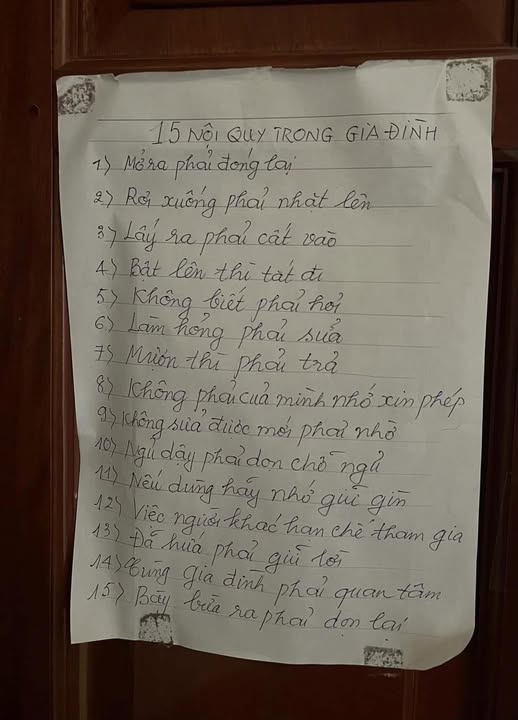 15 NỘI QUY TRONG GIA ĐÌNH
1) Mở ra phải đóng lại
2) Rơi xuống phải nhặt lên
3) Lấy ra phải cất vào
4) Bật lên thì tắt đi
5) Không biết phải hỏi
6) Làm hỏng phải sửa
7) Mượn thì phải trả
8) Không phải của mình nhớ xin phép
9) Không sửa được mới phải nhờ
10) Ngủ dậy phải dọn chỗ ngủ
11) Nếu dùng hãy nhớ giữ gìn
12) Việc người khác hạn chế tham gia
13) Đã hứa phải giữ lời
14) Cùng gia đình phải quan tâm
15) Bày bừa ra phải dọn lại